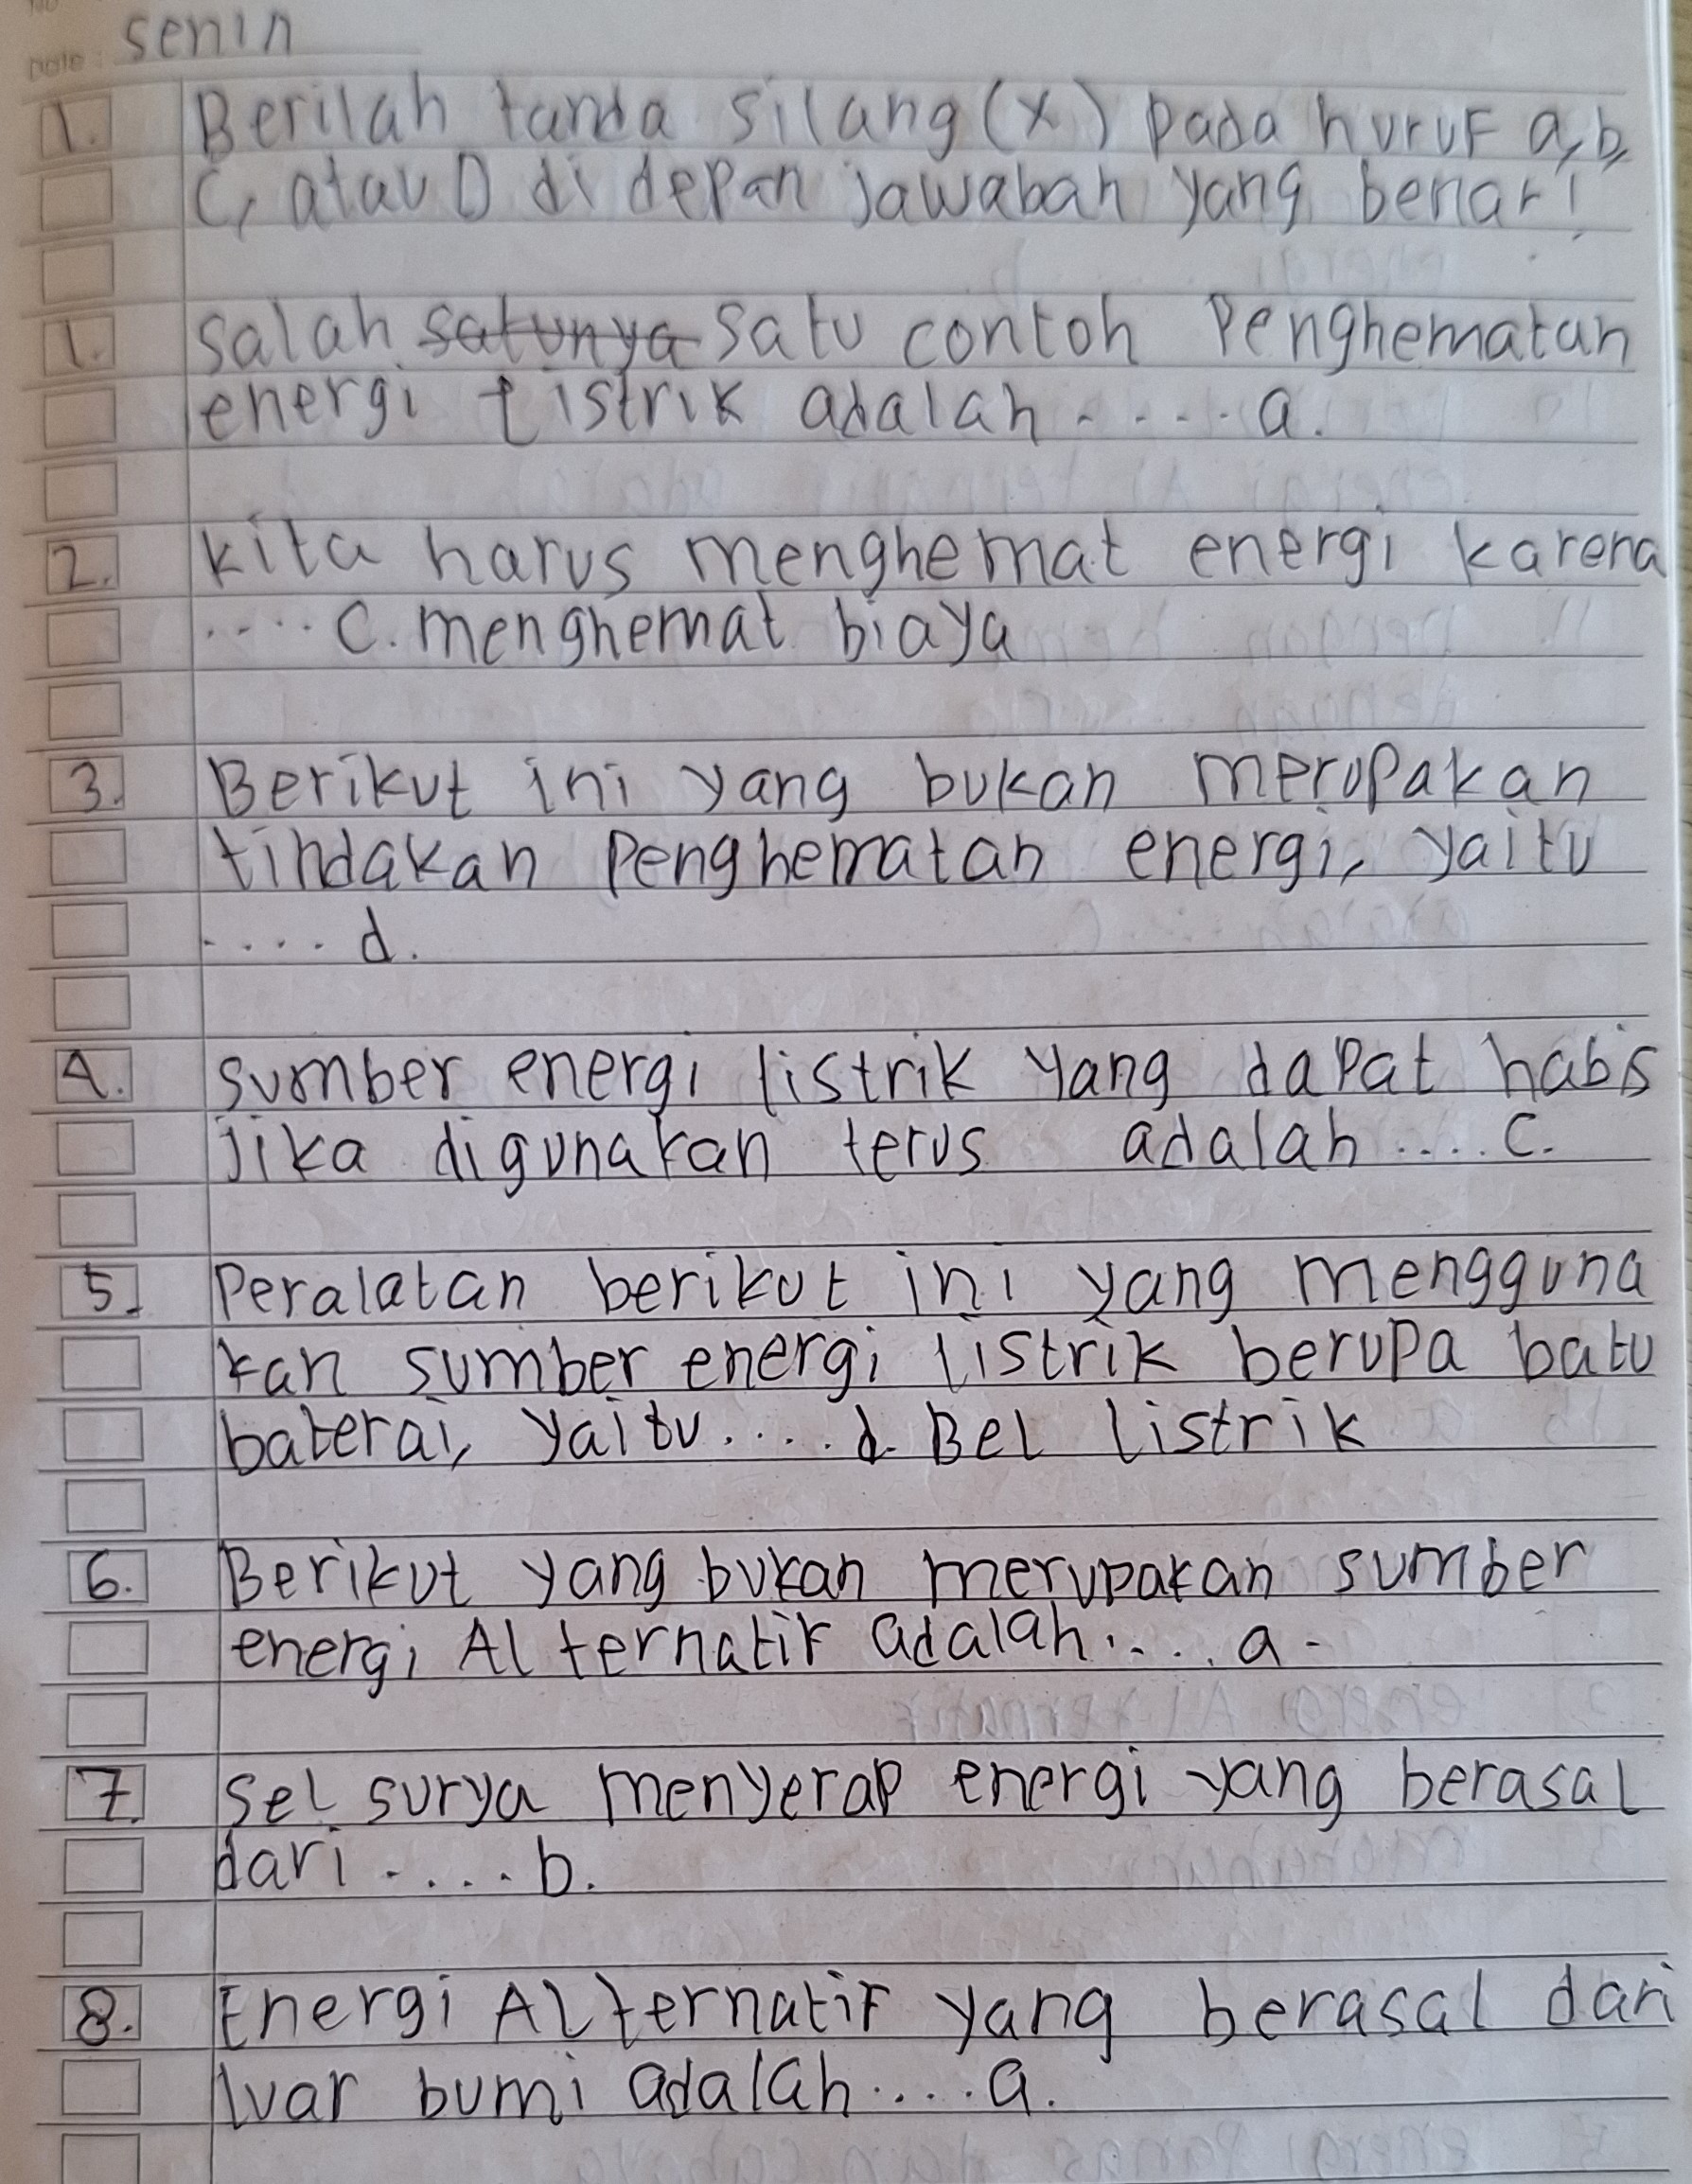 Date: senin
1. Berilah tanda silang (x) pada huruf a, b,
C, atau D di depan jawaban yang benar!
1. Salah satunya satu contoh Penghematan
energi listrik adalah ..... a.
2. kita harus menghemat energi karena
.... C. menghemat biaya
3. Berikut ini yang bukan merupakan
tindakan Penghematan energi, yaitu
.... d.
4. sumber energi listrik yang dapat habis
jika digunakan terus adalah .... C.
5. Peralatan berikut ini yang mengguna
kan sumber energi listrik berupa batu
baterai, yaitu .... d. Bel listrik
6. Berikut yang bukan merupakan sumber
energi Alternatif adalah .... a.
7. Sel surya menyerap energi yang berasal
dari .... b.
8. Energi Alternatif yang berasal dari
luar bumi adalah .... a.